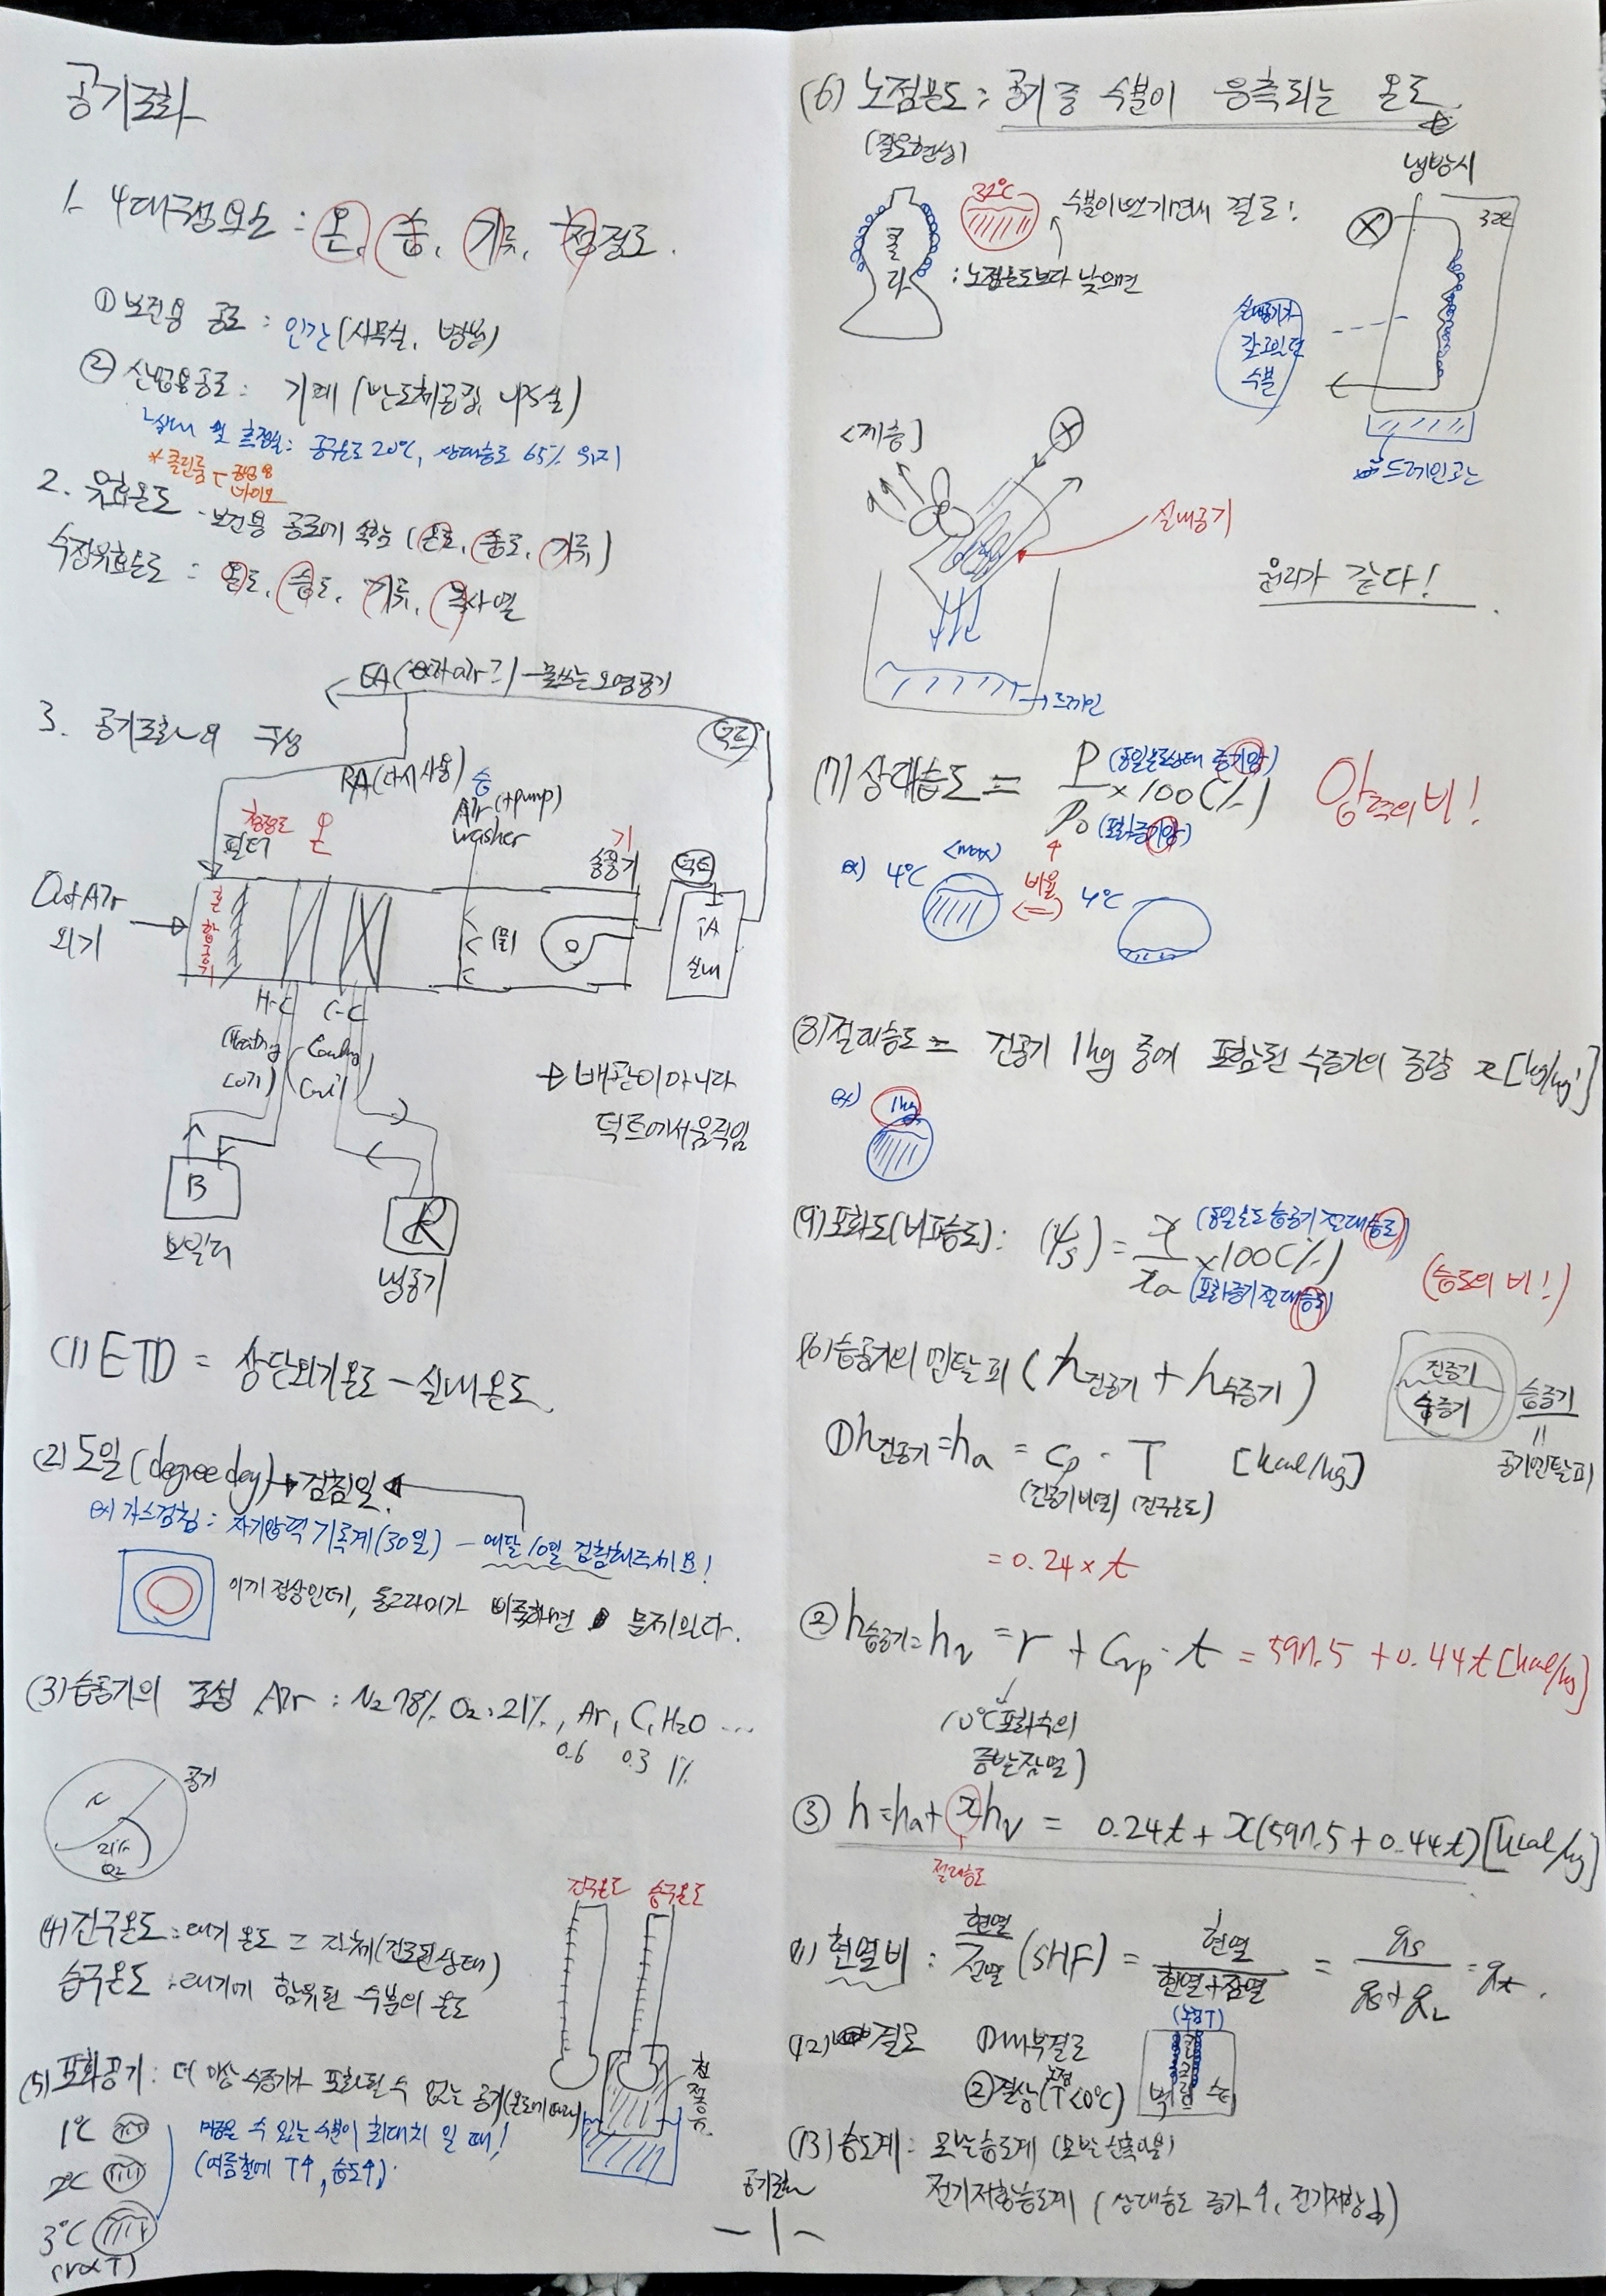 공기조화
1. 4대구성요소 : 온, 습, 기류, 청정도.
① 보건용 공조 : 인간(사무실, 병원)
② 산업용공조 : 기계 (반도체공장,
실내 및 측정실: 공구온도 20℃, 상대습도 65% 유지
* 클린룸 공업용
바이오
2. 유효온도 - 보건용 공조에 속함 (온도, 습도, 기류)
수정유효온도 : 온도, 습도, 기류, 복사열
EA( air) - 못쓰는 오염공기
3. 공기조화의 구성
덕트
RA(다시사용)
습
Air (+pump)
washer
청정도
필터
온
기
송풍기
덕트
Out Air
외기
혼합공기
(물)
IA
실내
H-C
(Heating
C-C
Cooling
Coil
→ 배관이 아니라
덕트에서 움직임
B
보일러
R
냉동기
(1) ETD = 상당외기온도 - 실내온도.
(2) 도일(degree day) → 검침일
ex) 가스검침 : 자기압력기록계(30일) - 매달 10일 검침해주세요!
이게 정상인데, 동그라미가 삐죽하면 문제있다.
(3) 습공기의 조성 Air : N₂ 78%, O₂ : 21%, Ar, C, H₂O ...
0.6 0.3 1%
공기
N
21%
O₂
건구온도 습구온도
(4) 건구온도 : 대기 온도 = 자체(건조된상태)
습구온도 : 대기에 함유된 수분의 온도
(5) 포화공기 : 더 이상 수증기가 포화될 수 없는 공기(온도에 따라)
1℃
2℃
3℃
(V∝T)
머금을 수 있는 수분이 최대치 일 때!
(여름철에 T↑, 습도↑)
천
공기조화
- 1 -
(6) 노점온도 : 공기 중 수분이 응축되는 온도
(결로현상)
콜라
32℃
수분이 생기면서 결로!
: 노점온도보다 낮으면
냉방시
실내공기가
갖고있던
수분
드레인
<제습>
실내공기
→드레인
원리가 같다!
(7) 상대습도 = P (동일온도상태 증기압)
× 100(%)
P₀ (포화증기압)
압력의 비!
ex) 4℃
<max>
비율
(=)
4℃
(8) 절대습도 = 건공기 1kg 중에 포함된 수증기의 중량 x [kg/kg']
ex) 1kg
(9) 포화도(비교습도) : (ψs) = x (동일온도 습공기 절대습도)
× 100(%)
xa (포화증기 절대습도)
(습도의 비!)
(10) 습공기의 엔탈피 (h건공기 + h수증기)
건증기
습증기
습증기
=
공기엔탈피
① h건공기 = ha = Cp · T [kcal/kg]
(건공기비열) (건구온도)
= 0.24 × t
② h습공기 = hv = r + Cvp · t = 597.5 + 0.44t [kcal/kg]
(0℃ 포화수의
증발잠열)
③ h = ha + xhv = 0.24t + x(597.5 + 0.44t) [kcal/kg]
절대습도
11) 현열비 : 현열/전열 (SHF) = 현열/현열+잠열 = qs/qs+qL = qt.
(12) 결로 ① 내부결로
② 결상(노점T<0℃)
(노점T)
벽
(13) 습도계 : 모발습도계 (모발 신축이용)
전기저항습도계 (상대습도 증가↑, 전기저항↓)